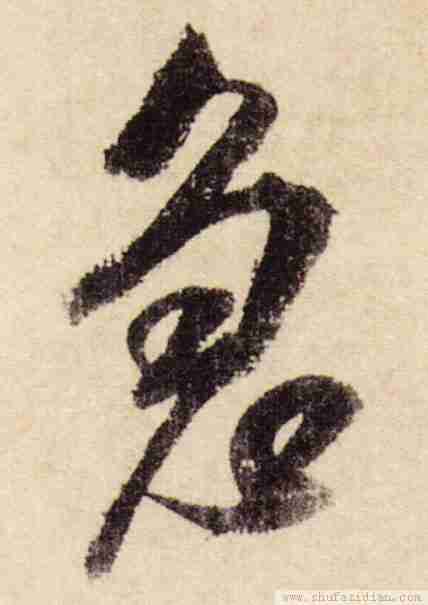 兔
www.shufazidian.com